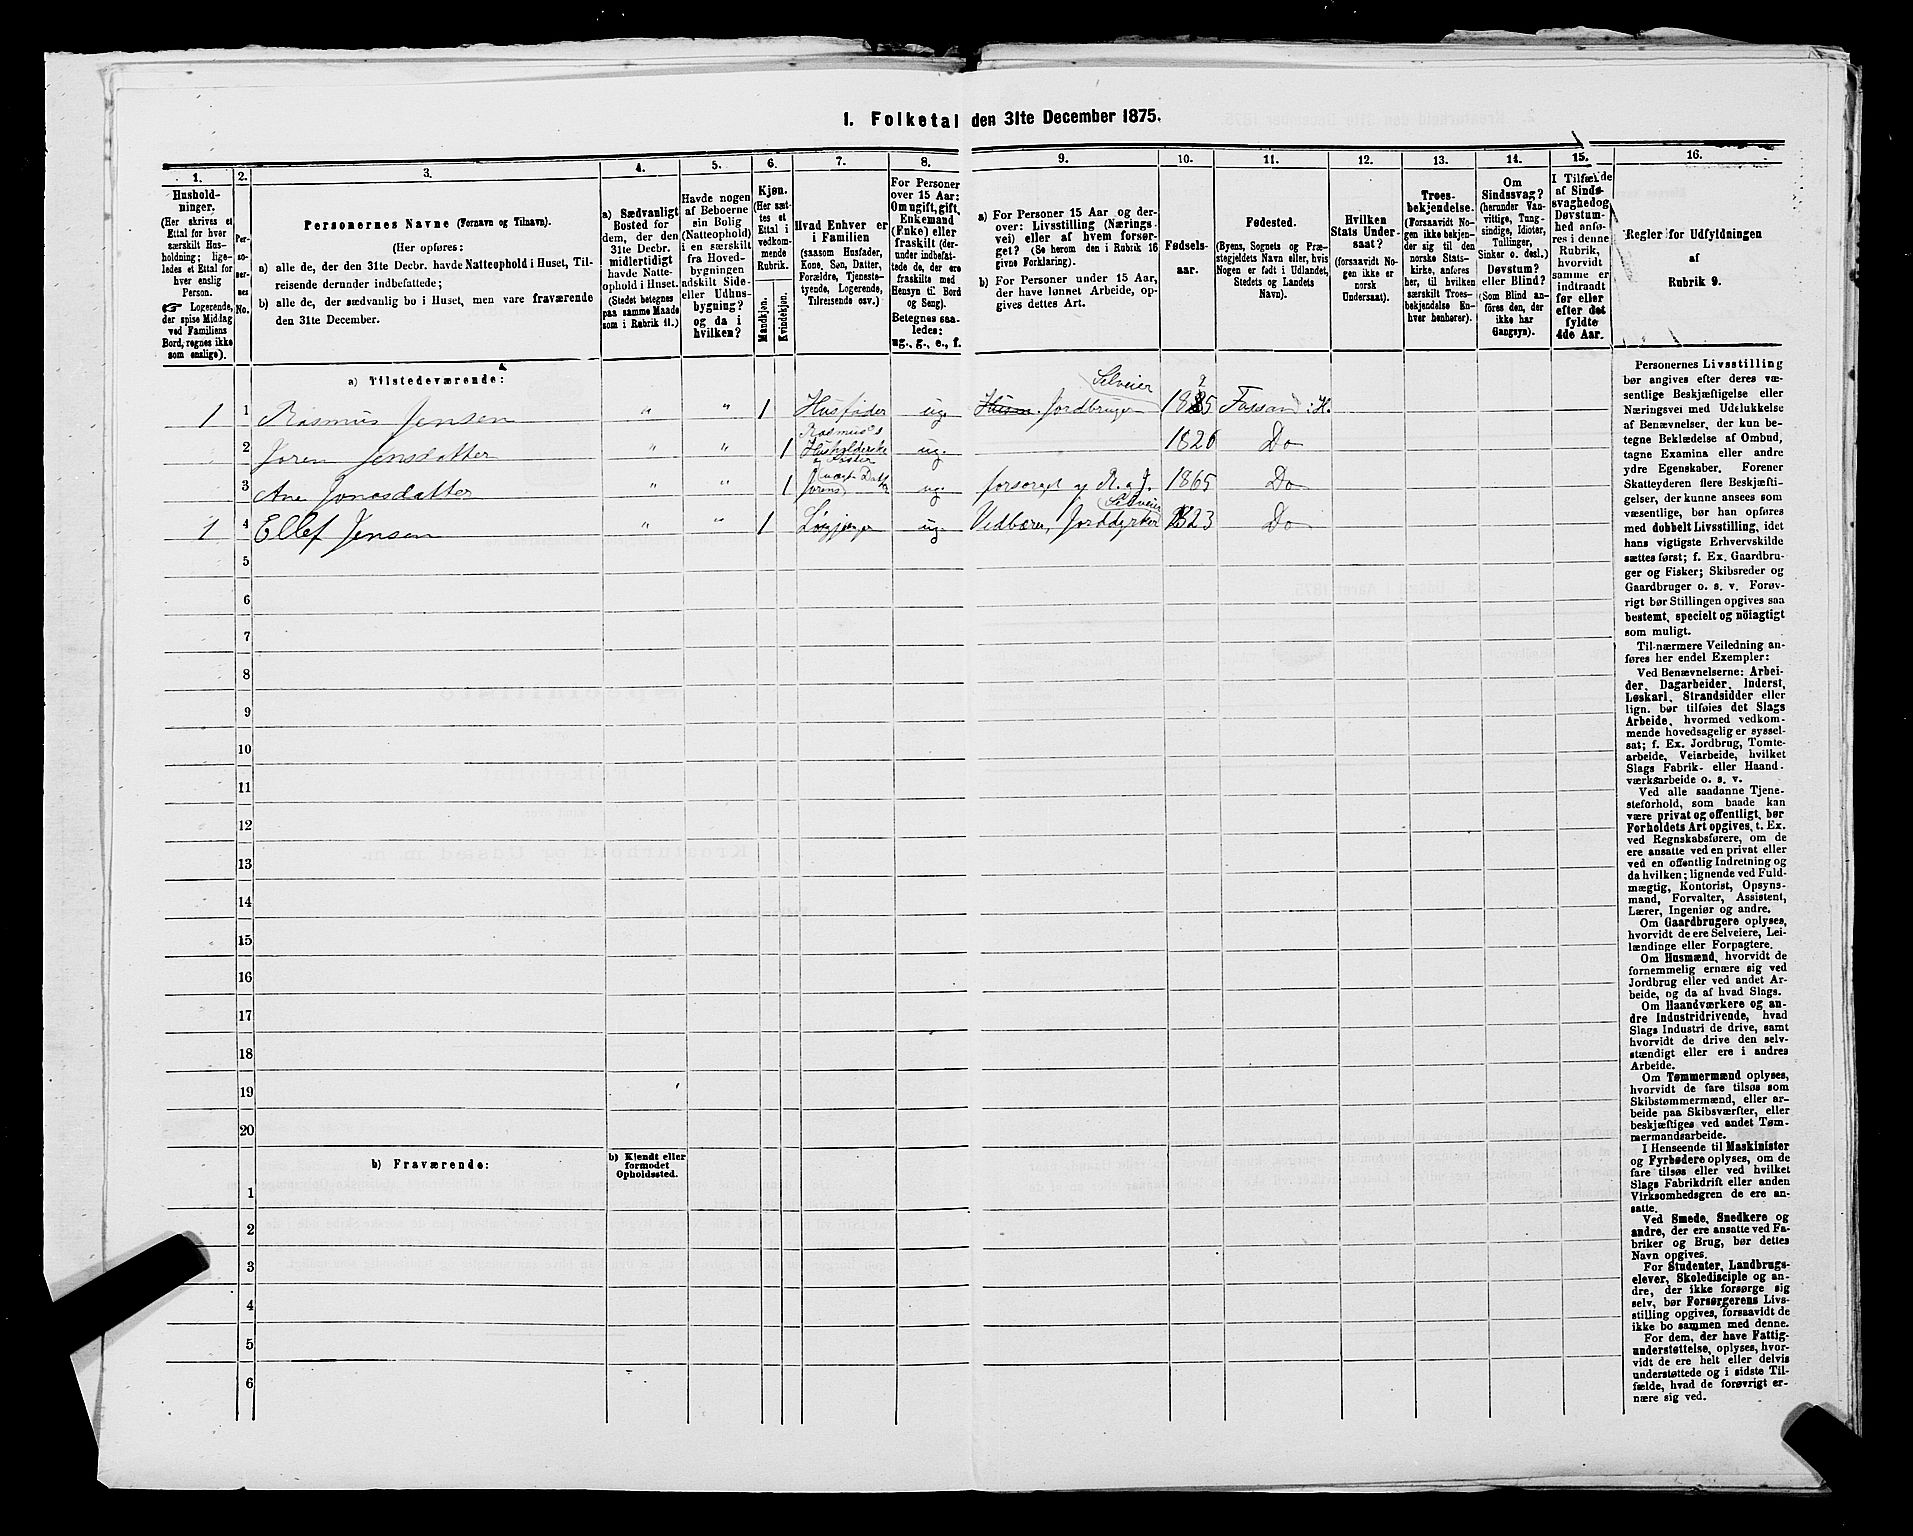 1. Folketal den 31te December 1875.
1.
2.
3.
4.
5.
6.
7.
8.
9.
10.
11.
12.
13.
14.
15.
16.
Hushold-
ninger.
(Her skrives et
Ettal for hver
særskilt Hus-
holdning; lige-
ledes et Ettal for
hver enslig
Person.
☞ Logerende,
der spise Middag
ved Familiens
Bord, regnes ikke
som enslige).
Per-
so-
ner-
nes
No.
Personernes Navne (Fornavn og Tilnavn).
(Her opføres:
a) alle de, der den 31te Decbr. havde Natteophold i Huset, Til-
reisende derunder indbefattede;
b) alle de, der sædvanlig bo i Huset, men vare fraværende
den 31te December.
a) Sædvanligt
Bosted for
dem, der den
31te Decbr.
midlertidigt
havde Natte-
ophold i Huset.
(Stedet betegnes
paa samme Maade
som i Rubrik 11.)
Havde nogen
af Beboerne
sin Bolig
(Natteophold)
i en særskilt
fra Hoved-
bygningen
adskilt Side-
eller Udhus-
bygning?
og da i
hvilken?
Kjøn.
(Her sæt-
tes et
Ettal i
vedkom-
mende
Rubrik.
Mandkjøn.
Kvindekjøn.
Hvad Enhver er
i Familien
(saasom Husfader,
Kone, Søn, Datter,
Forældre, Tjeneste-
tyende, Logerende,
Tilreisende osv.)
For Personer
over 15 Aar:
Om ugift, gift,
Enkemand
(Enke) eller
fraskilt (der-
under indbefat-
tede de, der ere
fraskilte med
Hensyn til Bord
og Seng).
Betegnes saa-
ledes:
ug., g., e., f.
a) For Personer 15 Aar og der-
over: Livsstilling (Nærings-
vei) eller af hvem forsør-
get? (Se herom den i Rubrik 16
givne Forklaring).
b) For Personer under 15 Aar,
der have lønnet Arbeide, op-
gives dettes Art.
Fødsels-
aar.
Fødested.
(Byens, Sognets og Præ-
stegjeldets Navn eller, hvis
Nogen er født i Udlandet,
Stedets og Landets
Navn).
Hvilken
Stats Under-
saat?
(forsaavidt No-
gen ikke er
norsk
Undersaat).
Troes-
bekjendelse.
(Forsaavidt No-
gen ikke bekjen-
der sig til den
norske Stats-
kirke, anføres
her, til hvilken
særskilt Troes-
bekjendelse En-
hver henhører).
Om
Sindssvag?
(herunder Van-
vittige, Tung-
sindige, Idioter,
Tullinger,
Sinker o. desl.)
Døvstum?
eller Blind?
(Som Blind an-
føres den, der
ikke har
Gangsyn).
I Tilfælde
af Sinds-
svaghed og
Døvstum-
hed anfø-
res i denne
Rubrik,
hvorvidt
samme er
indtraadt
før eller
efter det
fyldte
4de Aar.
Regler for Udfyldningen
af
Rubrik 9.
a) Tilstedeværende:
1 1 Rasmus Jensen " " 1 Husfader ug. Husm. Selveier Jordbruger 1825 Fossan i H.
2 Joren Jensdatter " " 1 Rasmus's Husholderske og Søster ug. 1826 Do
3 Ane Jonasdatter " " 1 Jorens (uægte Datter) ug. forsørget af R. og J. 1865 Do
1 4 Ellef Jensen " " 1 ug. Vedbærer, Selveier Jorddyrker 1823 Do
5
6
7
8
9
10
11
12
13
14
15
16
17
18
19
20
b) Fraværende:
b) Kjendt eller
formodet
Opholdssted.
1
2
3
4
5
6
Personernes Livsstilling
bør angives efter deres væ-
sentlige Beskjæftigelse eller
Næringsvei med Udelukkelse
af Benævnelser, der kun be-
tegne Beklædelse af Ombud,
tagne Examina eller andre
ydre Egenskaber. Forener
Skatteyderen flere Beskjæfti-
gelser, der kunne ansees som
væsentlige, bør han opføres
med dobbelt Livsstilling, idet
hans vigtigste Erhvervskilde
sættes først; f. Ex. Gaardbru-
ger og Fisker; Skibsreder og
Gaardbruger o. s. v. Forøv-
rigt bør Stillingen opgives saa
bestemt, specielt og nöiagtigt
som muligt.
Til nærmere Veiledning an-
føres her endel Exempler:
Ved Benævnelserne: Arbei-
der, Dagarbeider, Inderst,
Løskarl, Strandsidder eller
lign. bør tilføies det Slags
Arbeide, hvormed vedkom-
mende hovedsagelig er syssel-
sat; f. Ex. Jordbrug, Tomte-
arbeide, Veiarbeide, hvilket
Slags Fabrik- eller Haand-
værksarbeide o. s. v.
Ved alle saadanne Tjene-
steforhold, som baade kan
være privat og offentligt, bør
Forholdets Art opgives, t. Ex.
ved Regnskabsførere, om de
ere ansatte ved en privat eller
ved en offentlig Indretning og
da hvilken; lignende ved Fuld-
mægtig, Kontorist, Opsyns-
mand, Forvalter, Assistent,
Lærer, Ingeniør og andre.
Om Gaardbrugere oplyses,
hvorvidt de ere Selveiere, Lei-
lændinge eller Forpagtere.
Om Husmænd, hvorvidt de
fornemmelig ernære sig ved
Jordbrug eller ved andet Ar-
beide, og da af hvad Slags.
Om Haandværkere og an-
dre Industridrivende, hvad
Slags Industri de drive, samt
hvorvidt de drive den selv-
stændigt eller ere i andres
Arbeide.
Om Tømmermænd oplyses,
hvorvidt de fare tilsøs som
Skibstømmermænd, eller ar-
beide paa Skibsværfter, eller
beskjæftiges ved andet Tøm-
mermandsarbeide.
I Henseende til Maskinister
og Fyrbødere oplyses, om de
fare tilsøs eller ved hvilket
Slags Fabrikdrift eller anden
Virksomhedsgren de ere an-
satte.
Ved Smede, Snedkere og
andre, der ere ansatte ved Fa-
briker og Brug, bør dettes
Navn opgives.
For Studenter, Landbrugs-
elever, Skoledisciple og an-
dre, der ikke forsørge sig
selv, bør Forsørgerens Livs-
stilling opgives, forsaavidt de
ikke bo sammen med denne.
For dem, der have Fattig-
understøttelse, oplyses, hvor-
vidt de ere helt eller delvis
understøttede og i sidste Til-
fælde, hvad de forøvrigt er-
nære sig ved.